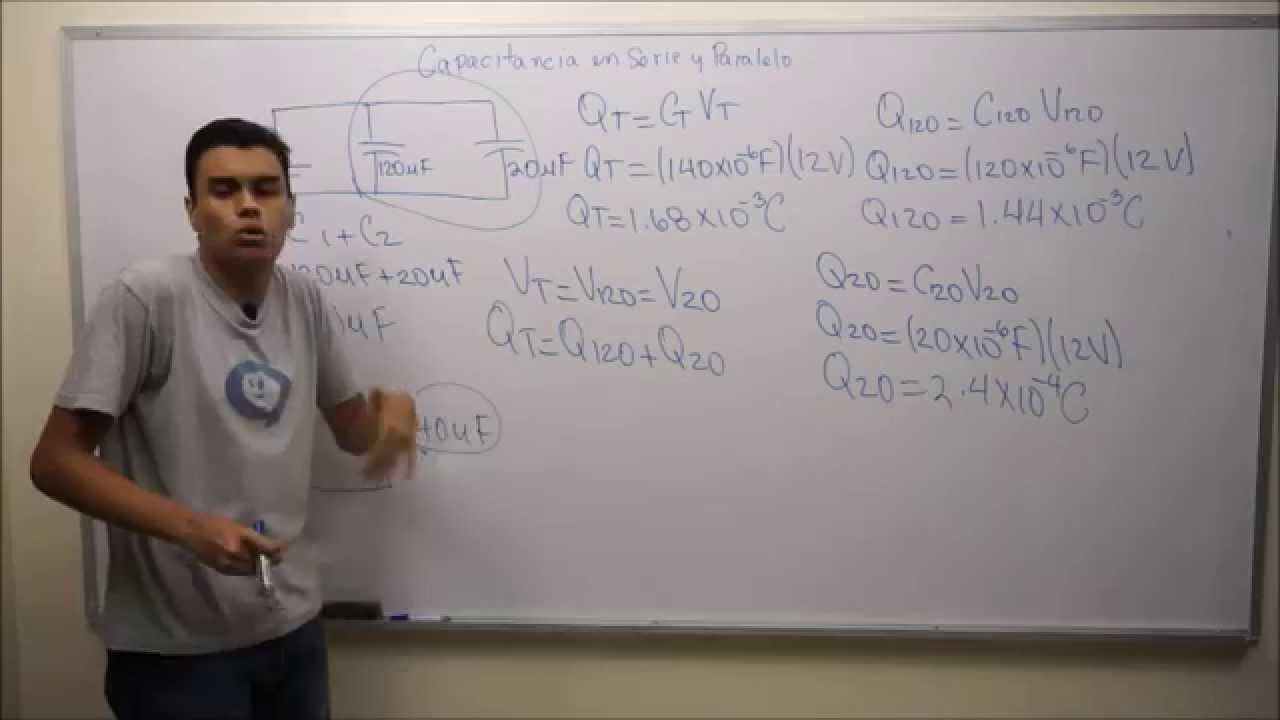 Capacitancia en Serie y Paralelo
120μF
20μF
C1+C2
20μF+20μF
μF
40μF
QT=CTVT
QT=(140x10^-6F)(12V)
QT=1.68x10^-3C
VT=V120=V20
QT=Q120+Q20
Q120=C120V120
Q120=(120x10^-6F)(12V)
Q120=1.44x10^-3C
Q20=C20V20
Q20=(20x10^-6F)(12V)
Q20=2.4x10^-4C